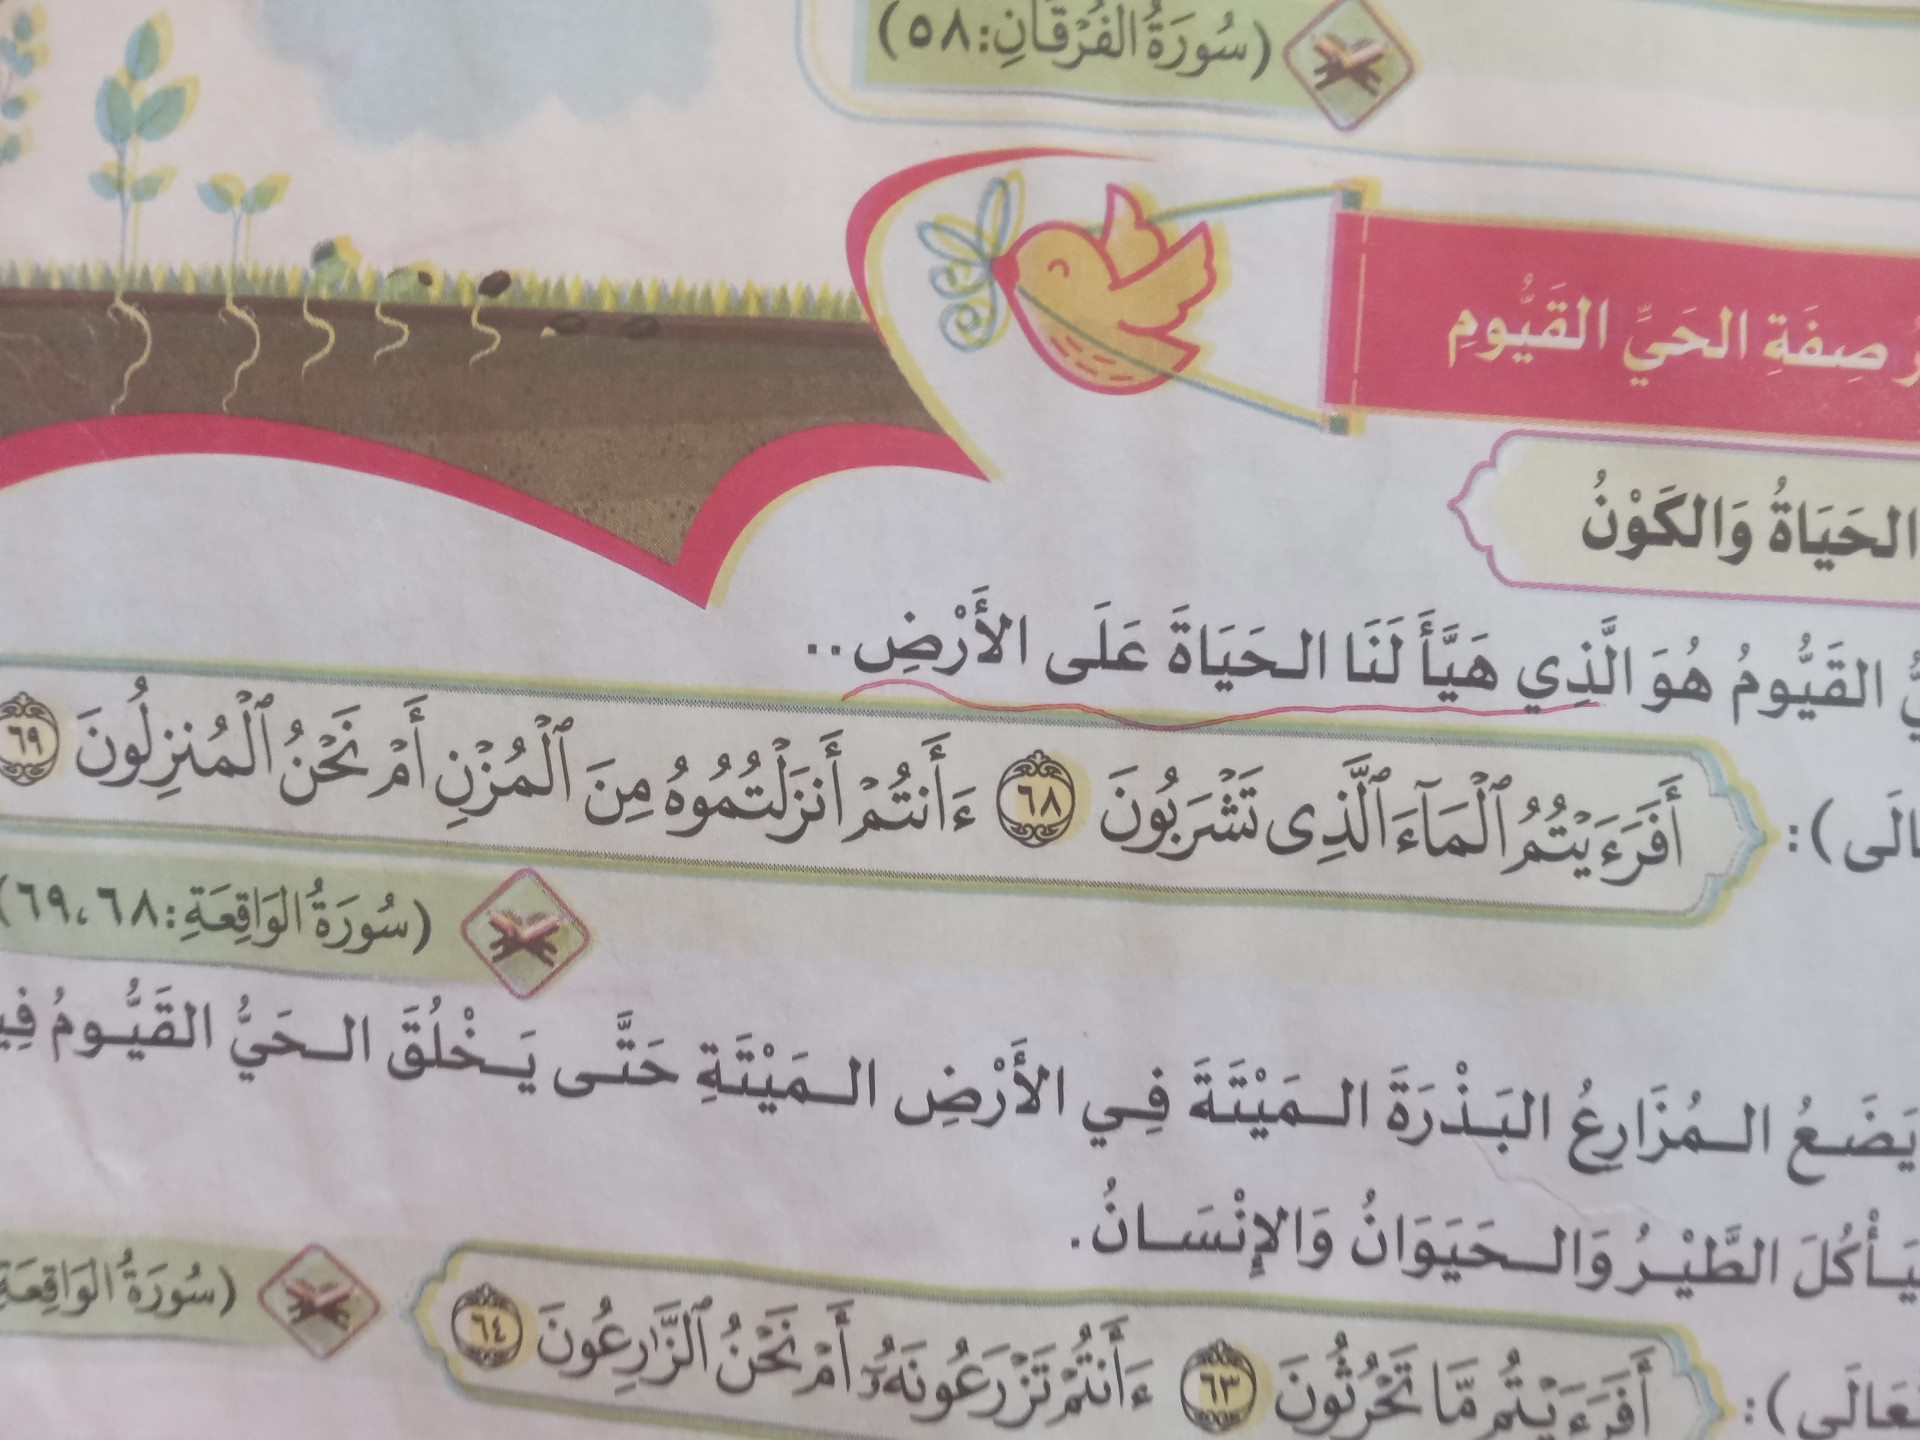 (سُورَةُ الفُرْقَانِ:٥٨)
صِفَةِ الحَيِّ القَيُّومِ
الحَيَاةُ وَالكَوْنُ
القَيُّومُ هُوَ الَّذِي هَيَّأَ لَنَا الحَيَاةَ عَلَى الأَرْضِ..
أَفَرَءَيْتُمُ ٱلْمَآءَ ٱلَّذِى تَشْرَبُونَ ٦٨ ءَأَنتُمْ أَنزَلْتُمُوهُ مِنَ ٱلْمُزْنِ أَمْ نَحْنُ ٱلْمُنزِلُونَ ٦٩
(سُورَةُ الوَاقِعَةِ:٦٨،٦٩)
يَضَعُ المُزَارِعُ البَذْرَةَ المَيْتَةَ فِي الأَرْضِ المَيْتَةِ حَتَّى يَخْلُقَ الحَيُّ القَيُّومُ
الطَّيْرُ وَالحَيَوَانُ وَالإِنْسَانُ.
أَفَرَءَيْتُم مَّا تَحْرُثُونَ ٦٣ ءَأَنتُمْ تَزْرَعُونَهُۥٓ أَمْ نَحْنُ ٱلزَّٰرِعُونَ ٦٤
(سُورَةُ الوَاقِعَةِ